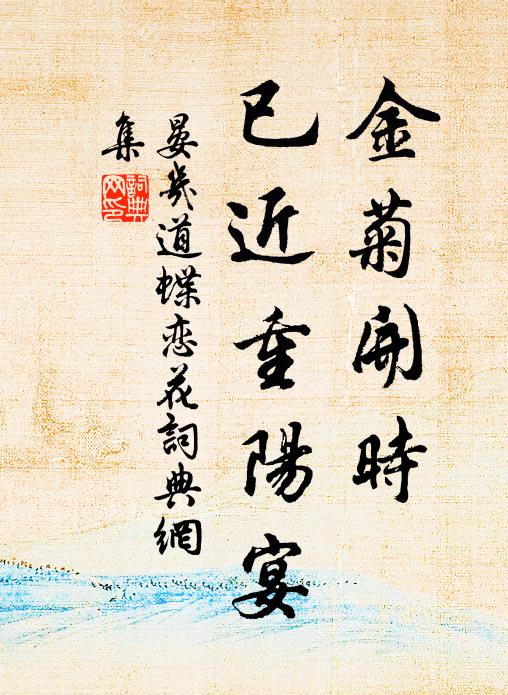 金菊開時
已近重陽宴
晏幾道蝶恋花詞典網
集
詞典
网印